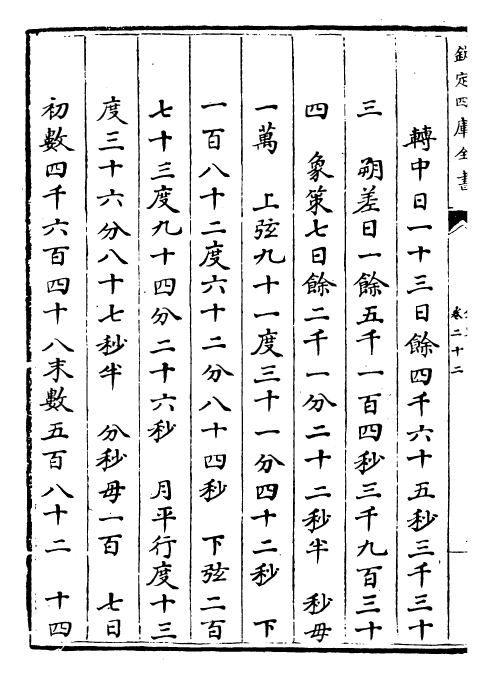 欽定四庫全書
卷二十二
轉中日一十三日餘四千六十五秒三千三十
三　朔差日一餘五千一百四秒三千九百三十
四　象策七日餘二千一分二十二秒半　秒母
一萬　上弦九十一度三十一分四十二秒　下
一百八十二度六十二分八十四秒　下弦二百
七十三度九十四分二十六秒　月平行度十三
度三十六分八十七秒半　分秒母一百　七日
初數四千六百四十八末數五百八十二　十四